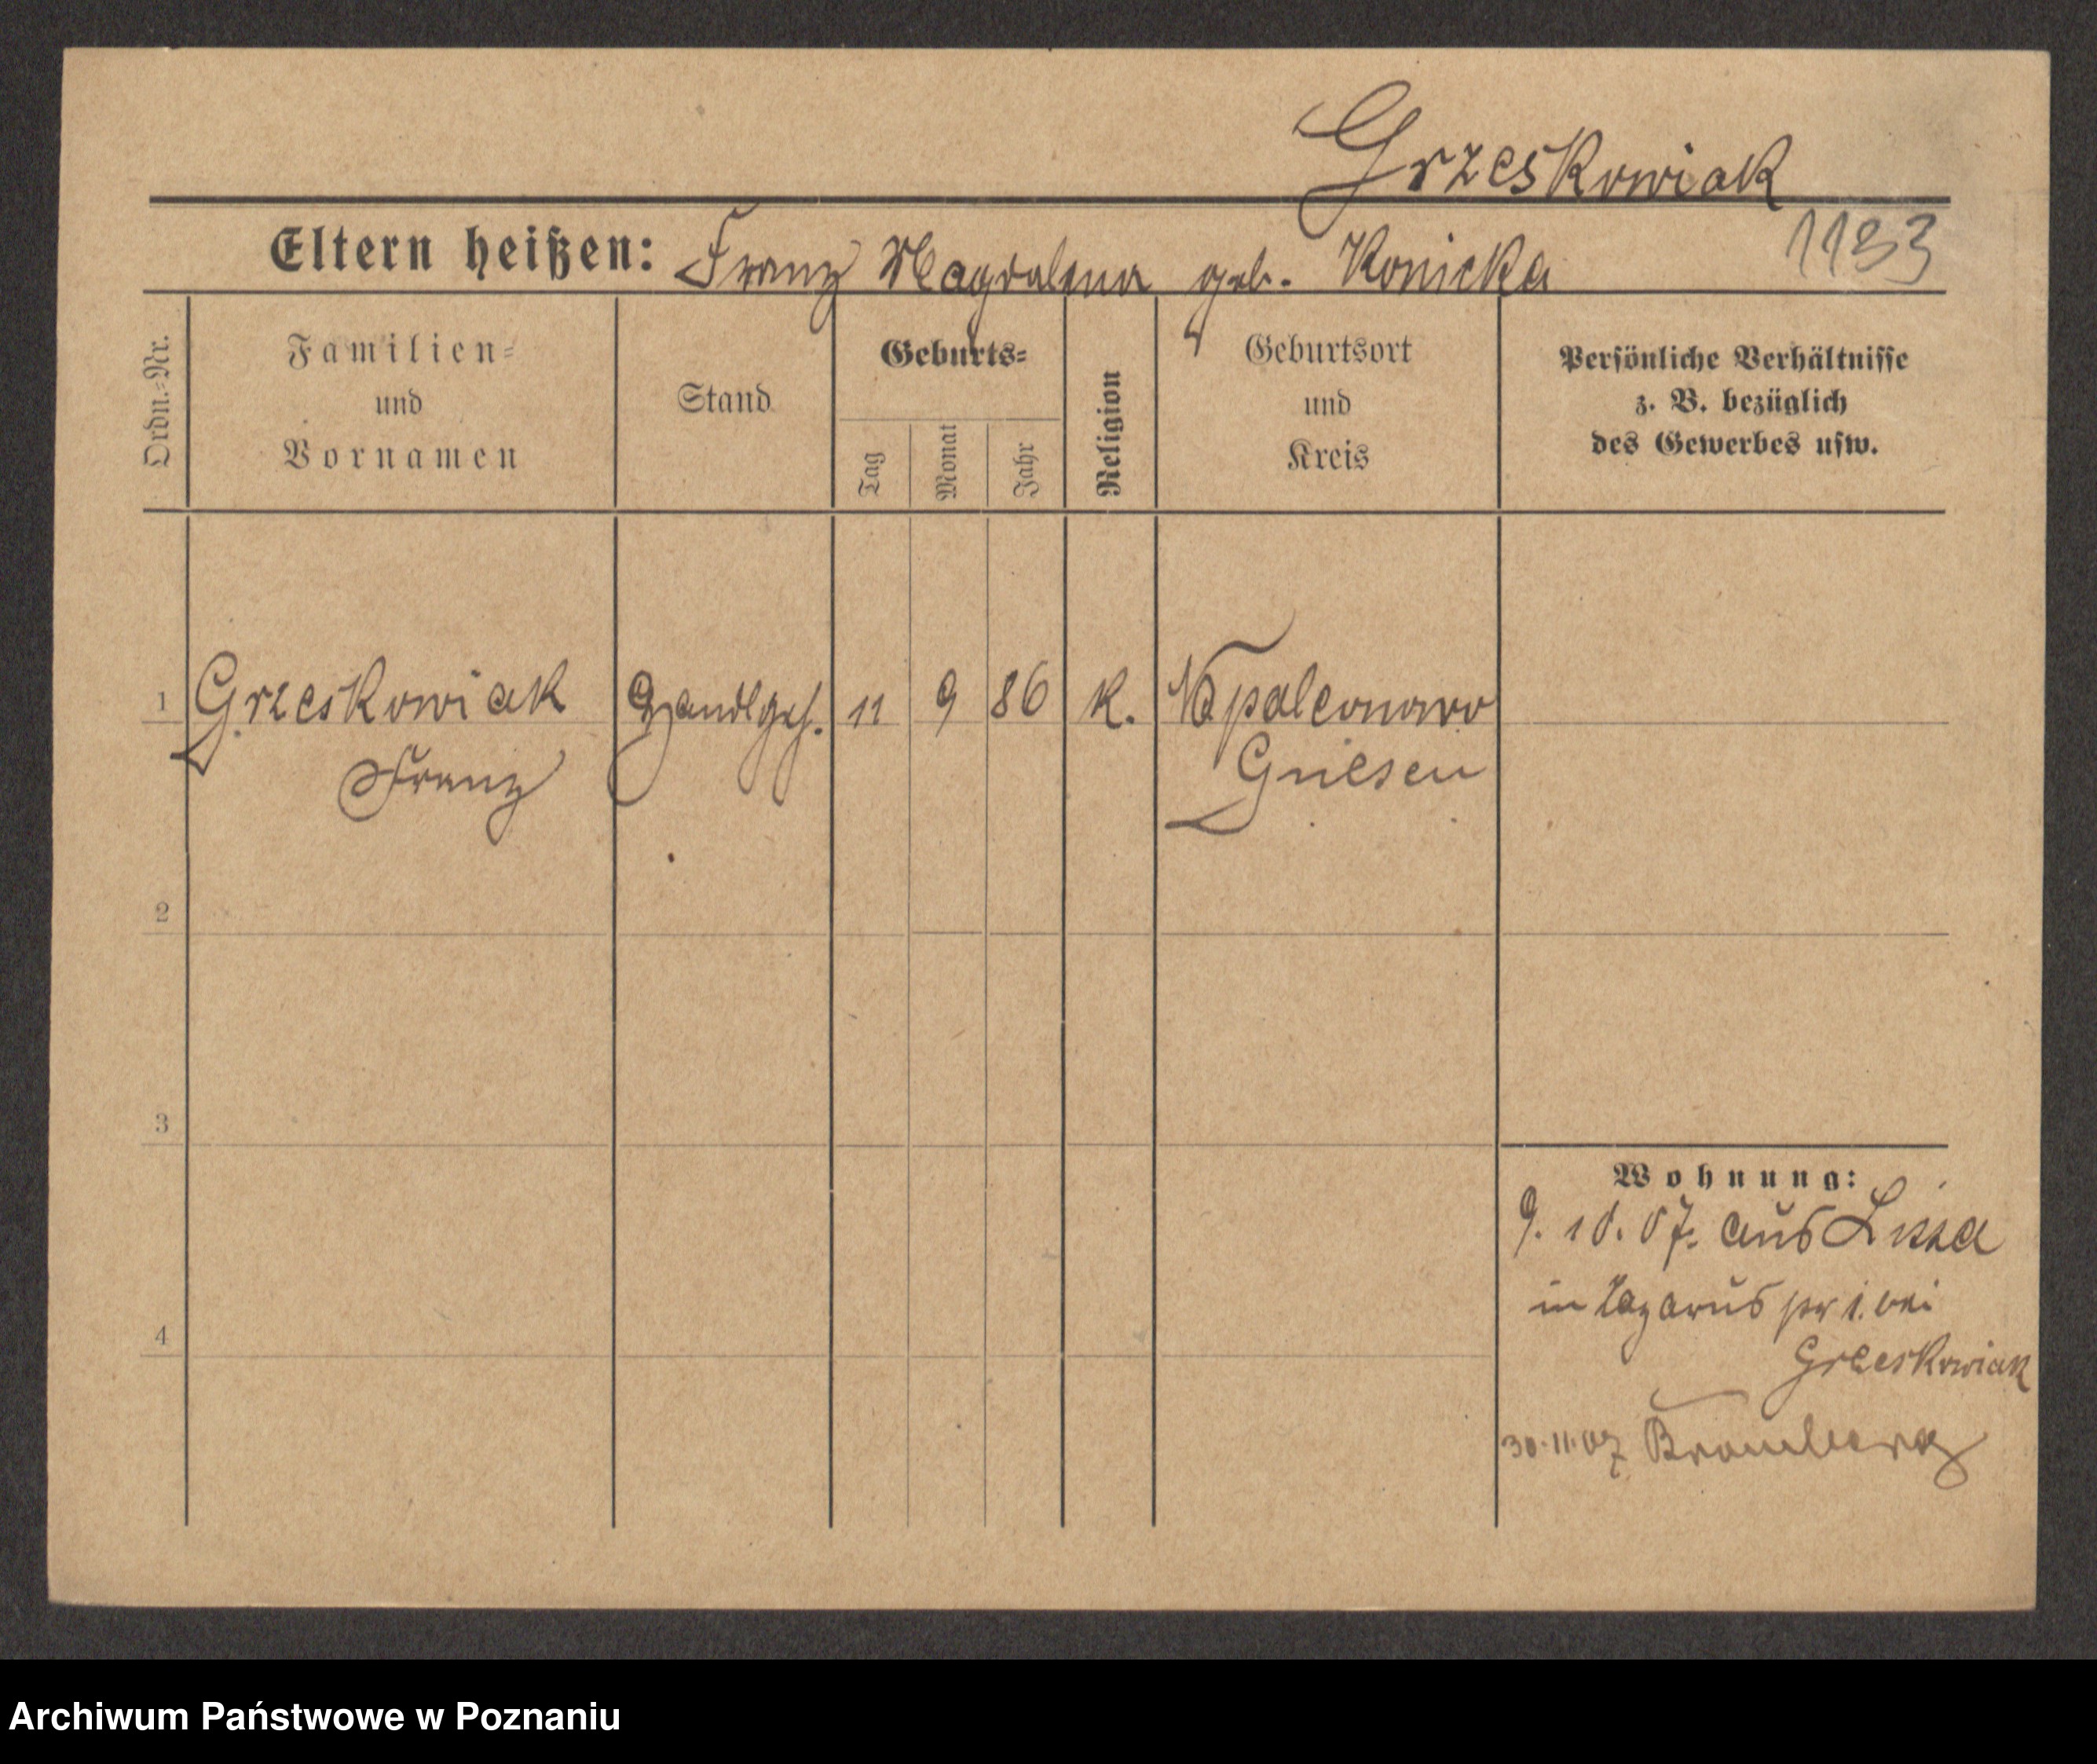 Grzeskowiak
Eltern heißen: Franz Magdalena geb. Konicka 1193
Ordn.-Nr.
Familien-
und
Vornamen
Stand
Geburts-
Tag
Monat
Jahr
Religion
Geburtsort
und
Kreis
Persönliche Verhältnisse
z. B. bezüglich
des Gewerbes usw.
1 Grzeskowiak Handlgeh. 11 9 86 K. Napoleonowo
Franz Gnesen
2
3
4
Wohnung:
9. 10. 07. aus Lissa
in Lazarus bei
Grzeskowiak
30.11.07 Bromberg
Archiwum Państwowe w Poznaniu